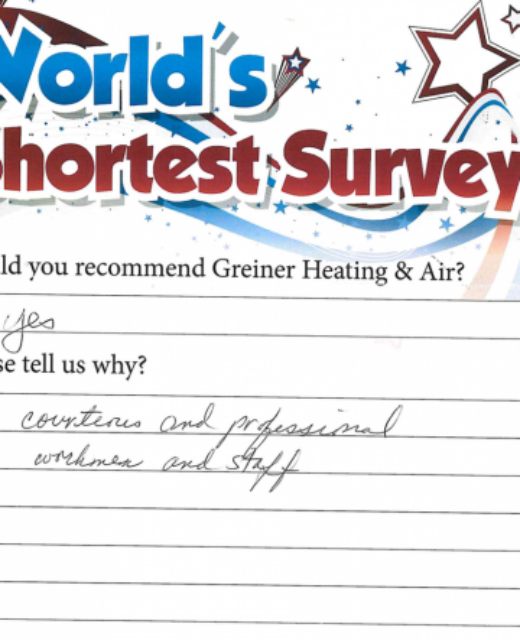 World's
Shortest Survey
ld you recommend Greiner Heating & Air?
yes
se tell us why?
courteous and professional
workmen and staff